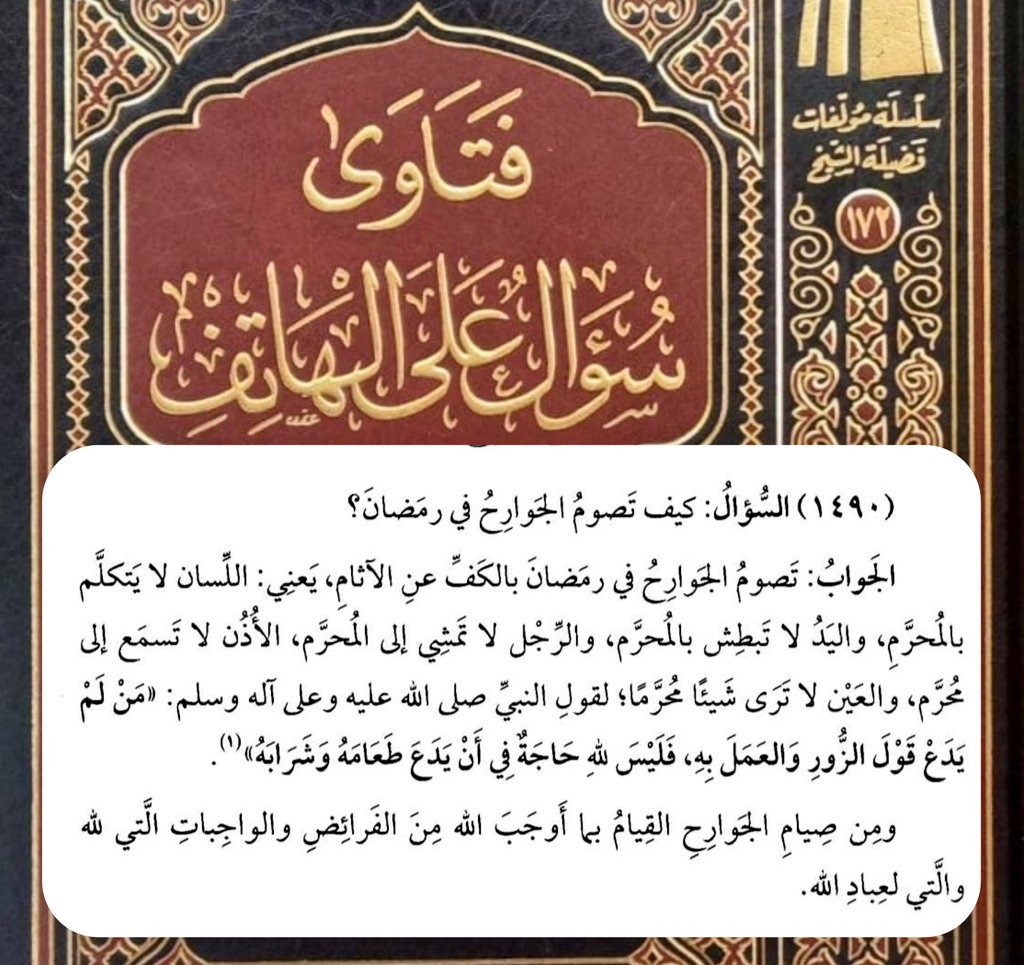 فَتَاوَىٰ
سُؤَالٌ عَلَى الْهَاتِفِ
سلسلة مؤلفات
فضيلة الشيخ
١٧٢
(١٤٩٠) السُّؤالُ: كيف تَصومُ الجَوارِحُ في رمَضانَ؟
الجَوابُ: تَصومُ الجَوارِحُ في رمَضانَ بالكَفِّ عنِ الآثامِ، يَعنِي: اللِّسان لا يَتكلَّم
بالمُحرَّمِ، واليَدُ لا تَبطِش بالمُحرَّم، والرِّجْل لا تَمشِي إلى المُحرَّم، الأُذُن لا تَسمَع إلى
مُحرَّم، والعَيْن لا تَرَى شَيئًا مُحرَّمًا؛ لقولِ النبيِّ صلى الله عليه وعلى آله وسلم: «مَنْ لَمْ
يَدَعْ قَوْلَ الزُّورِ وَالعَمَلَ بِهِ، فَلَيْسَ للهِ حَاجَةٌ فِي أَنْ يَدَعَ طَعَامَهُ وَشَرَابَهُ»(١).
ومِن صِيامِ الجَوارِحِ القِيامُ بما أَوجَبَ الله مِنَ الفَرائِضِ والواجِباتِ الَّتي لله
والَّتي لعِبادِ الله.